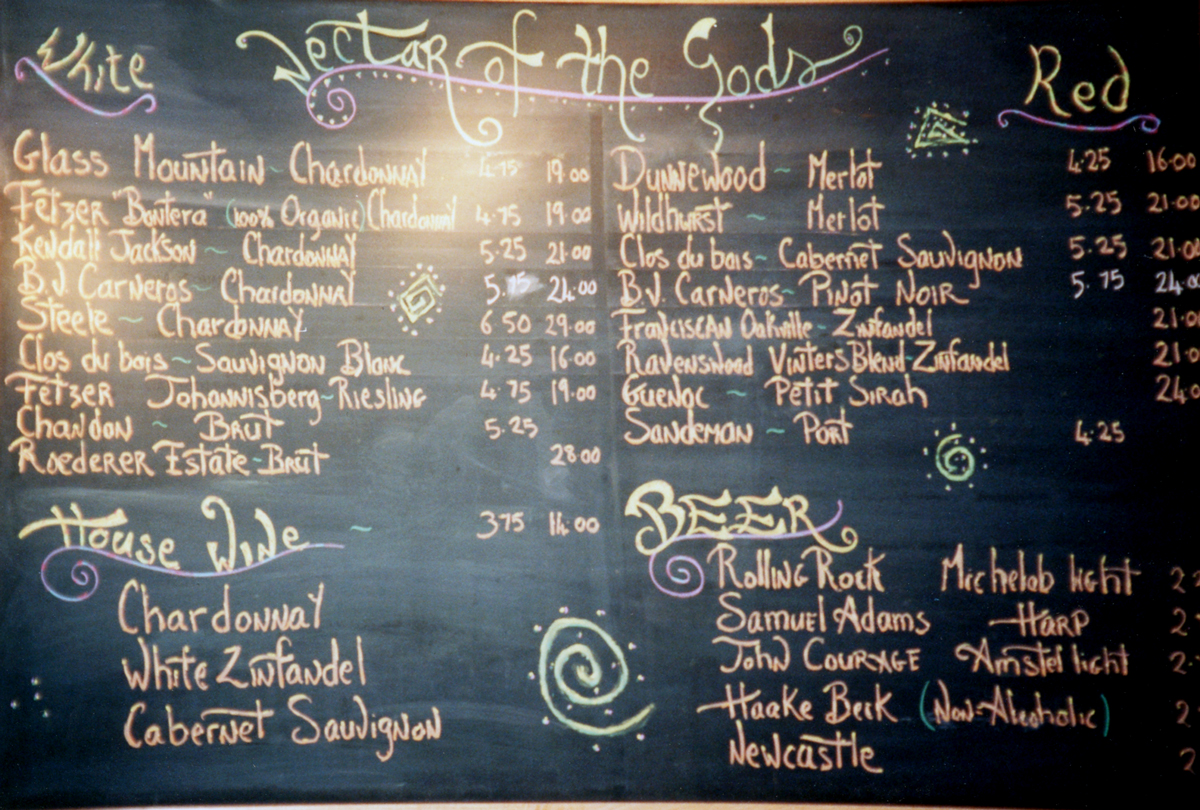 Nectar of the Gods
White
Glass Mountain ~ Chardonnay 4.75 19.00
Fetzer "Bontera" (100% Organic) Chardonnay 4.75 19.00
Kendall Jackson ~ Chardonnay 5.25 21.00
B.V. Carneros ~ Chardonnay 5.75 24.00
Steele ~ Chardonnay 6.50 29.00
Clos du bois ~ Sauvignon Blanc 4.25 16.00
Fetzer Johannisberg ~ Riesling 4.75 19.00
Chandon ~ Brut 5.25
Roederer Estate ~ Brut 28.00
House Wine ~ 375 14.00
Chardonnay
White Zinfandel
Cabernet Sauvignon
Red
Dunnewood ~ Merlot 4.25 16.00
Wildhurst ~ Merlot 5.25 21.00
Clos du bois ~ Cabernet Sauvignon 5.25 21.00
B.V. Carneros ~ Pinot Noir 5.75 24.00
Franciscan Oakville ~ Zinfandel 21.0
Ravenswood Vinters Blend ~ Zinfandel 21.0
Guenoc ~ Petit Sirah 24.0
Sandeman ~ Port 4.25
BEER
Rolling Rock Michelob light 2
Samuel Adams Harp 2
John Courage Amstel light 2
Haake Beck (Non-Alcoholic) 2
Newcastle 2